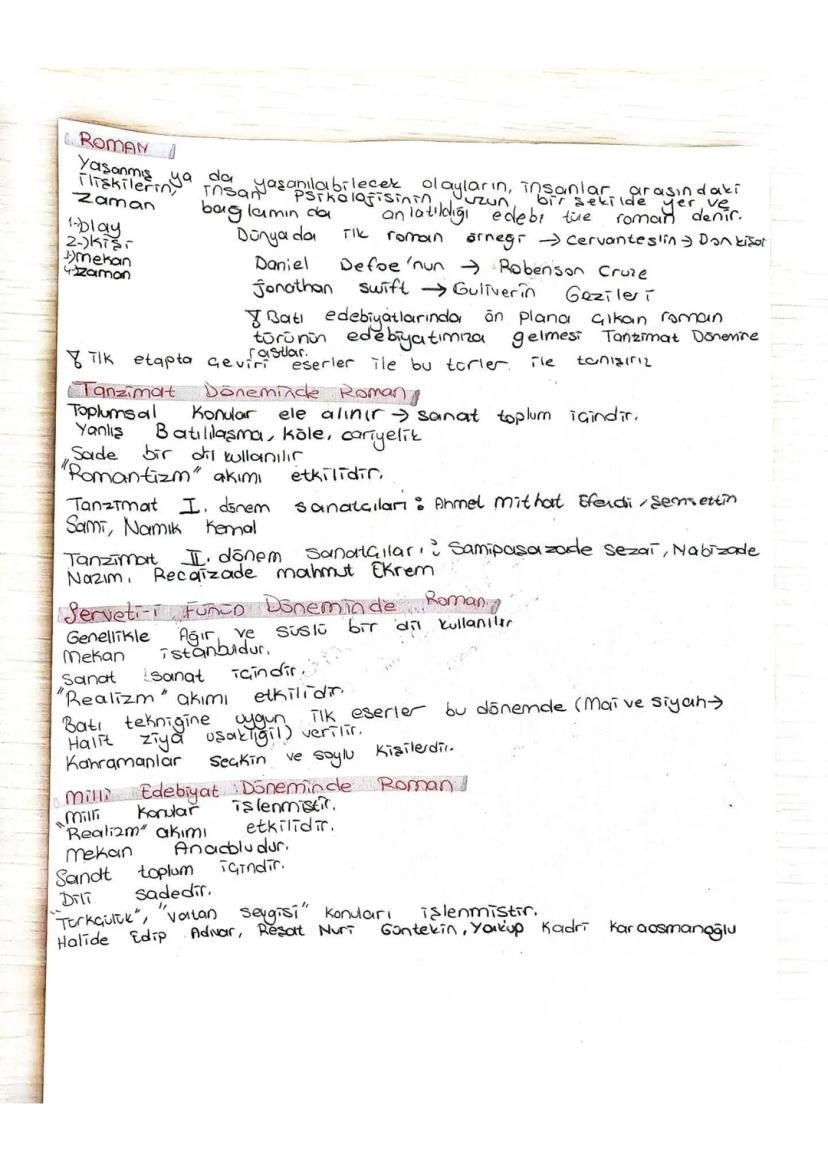 ROMAN
Yaşanmış ya da yaşanılabilecek olayların, insanlar arasındaki
ilişkilerin, insan psikolojisinin uzun bir şekilde yer ve
zaman bağlamında anlatıldığı edebi türe roman denir.
1-)olay
2-)kişi
3-)mekan
4-)zaman
Dünyada ilk roman örneği → Cervantes'in → Don kişot
Daniel Defoe'nun → Robenson Cruze
Jonathan Swift → Guliverin Gezileri
Batı edebiyatlarında ön plana çıkan roman
türünün edebiyatımıza gelmesi Tanzimat Dönemine
rastlar.
İlk etapta çeviri eserler ile bu türler ile tanışırız
Tanzimat Döneminde Roman
Toplumsal Konular ele alınır → sanat toplum içindir.
Yanlış Batılılaşma, köle, cariyelik
Sade bir dil kullanılır
"Romantizm" akımı etkilidir.
Tanzimat I. dönem sanatçıları : Ahmet Mithat Efendi, Şemsettin
Sami, Namık Kemal
Tanzimat II. dönem sanatçıları : Samipaşazade Sezai, Nabizade
Nazım, Recaizade mahmut Ekrem
Serveti-i Fünun Döneminde Roman
Genellikle Ağır ve süslü bir dil kullanılır
Mekan istanbuldur.
Sanat sanat içindir.
"Realizm" akımı etkilidir.
Batı tekniğine uygun ilk eserler bu dönemde (Mai ve Siyah →
Halit Ziya Uşaklıgil) verilir.
Kahramanlar seçkin ve soylu kişilerdir.
Milli Edebiyat Döneminde Roman
"Milli Konular işlenmiştir.
"Realizm" akımı etkilidir.
Mekan Anadoludur.
Sanat toplum içindir.
Dili sadedir.
"Türkçülük", "vatan sevgisi" konuları işlenmiştir.
Halide Edip Adıvar, Reşat Nuri Güntekin, Yakup Kadri Karaosmanoğlu